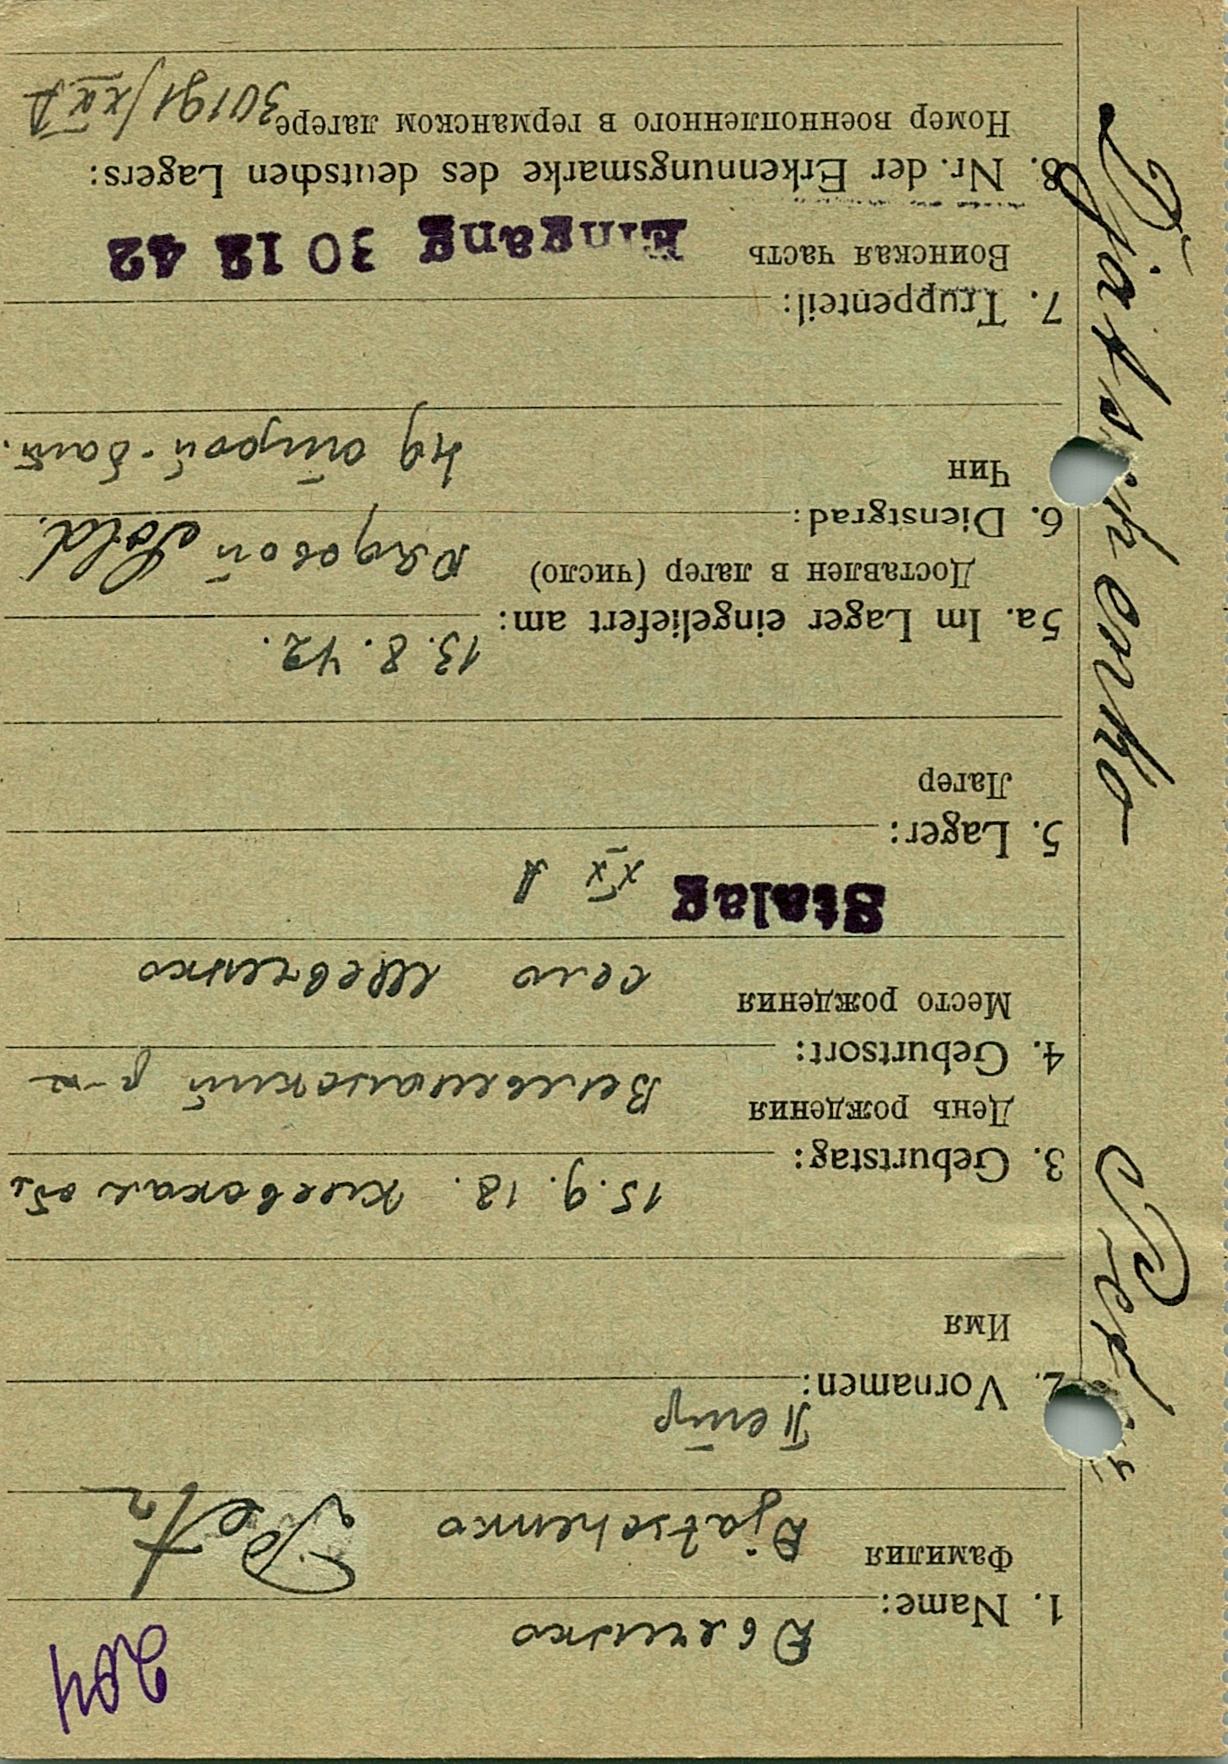 204
Дяченко
1. Name:
Фамилия Djatschenko Petr
Петр
2. Vornamen:
Имя
15.9.18. Киевская обл
3. Geburtstag:
День рождения
4. Geburtsort:
Место рождения село Шевченко
Stalag XX A
5. Lager:
Лагер
13.8.42.
5a. Im Lager eingeliefert am:
Доставлен в лагер (число) Рядовой Sold.
6. Dienstgrad:
Чин
7. Truppenteil:
Воинская часть Eingang 30 12 42
8. Nr. der Erkennungsmarke des deutschen Lagers:
Номер военнопленного в германском лагере
Djatschenko Petr